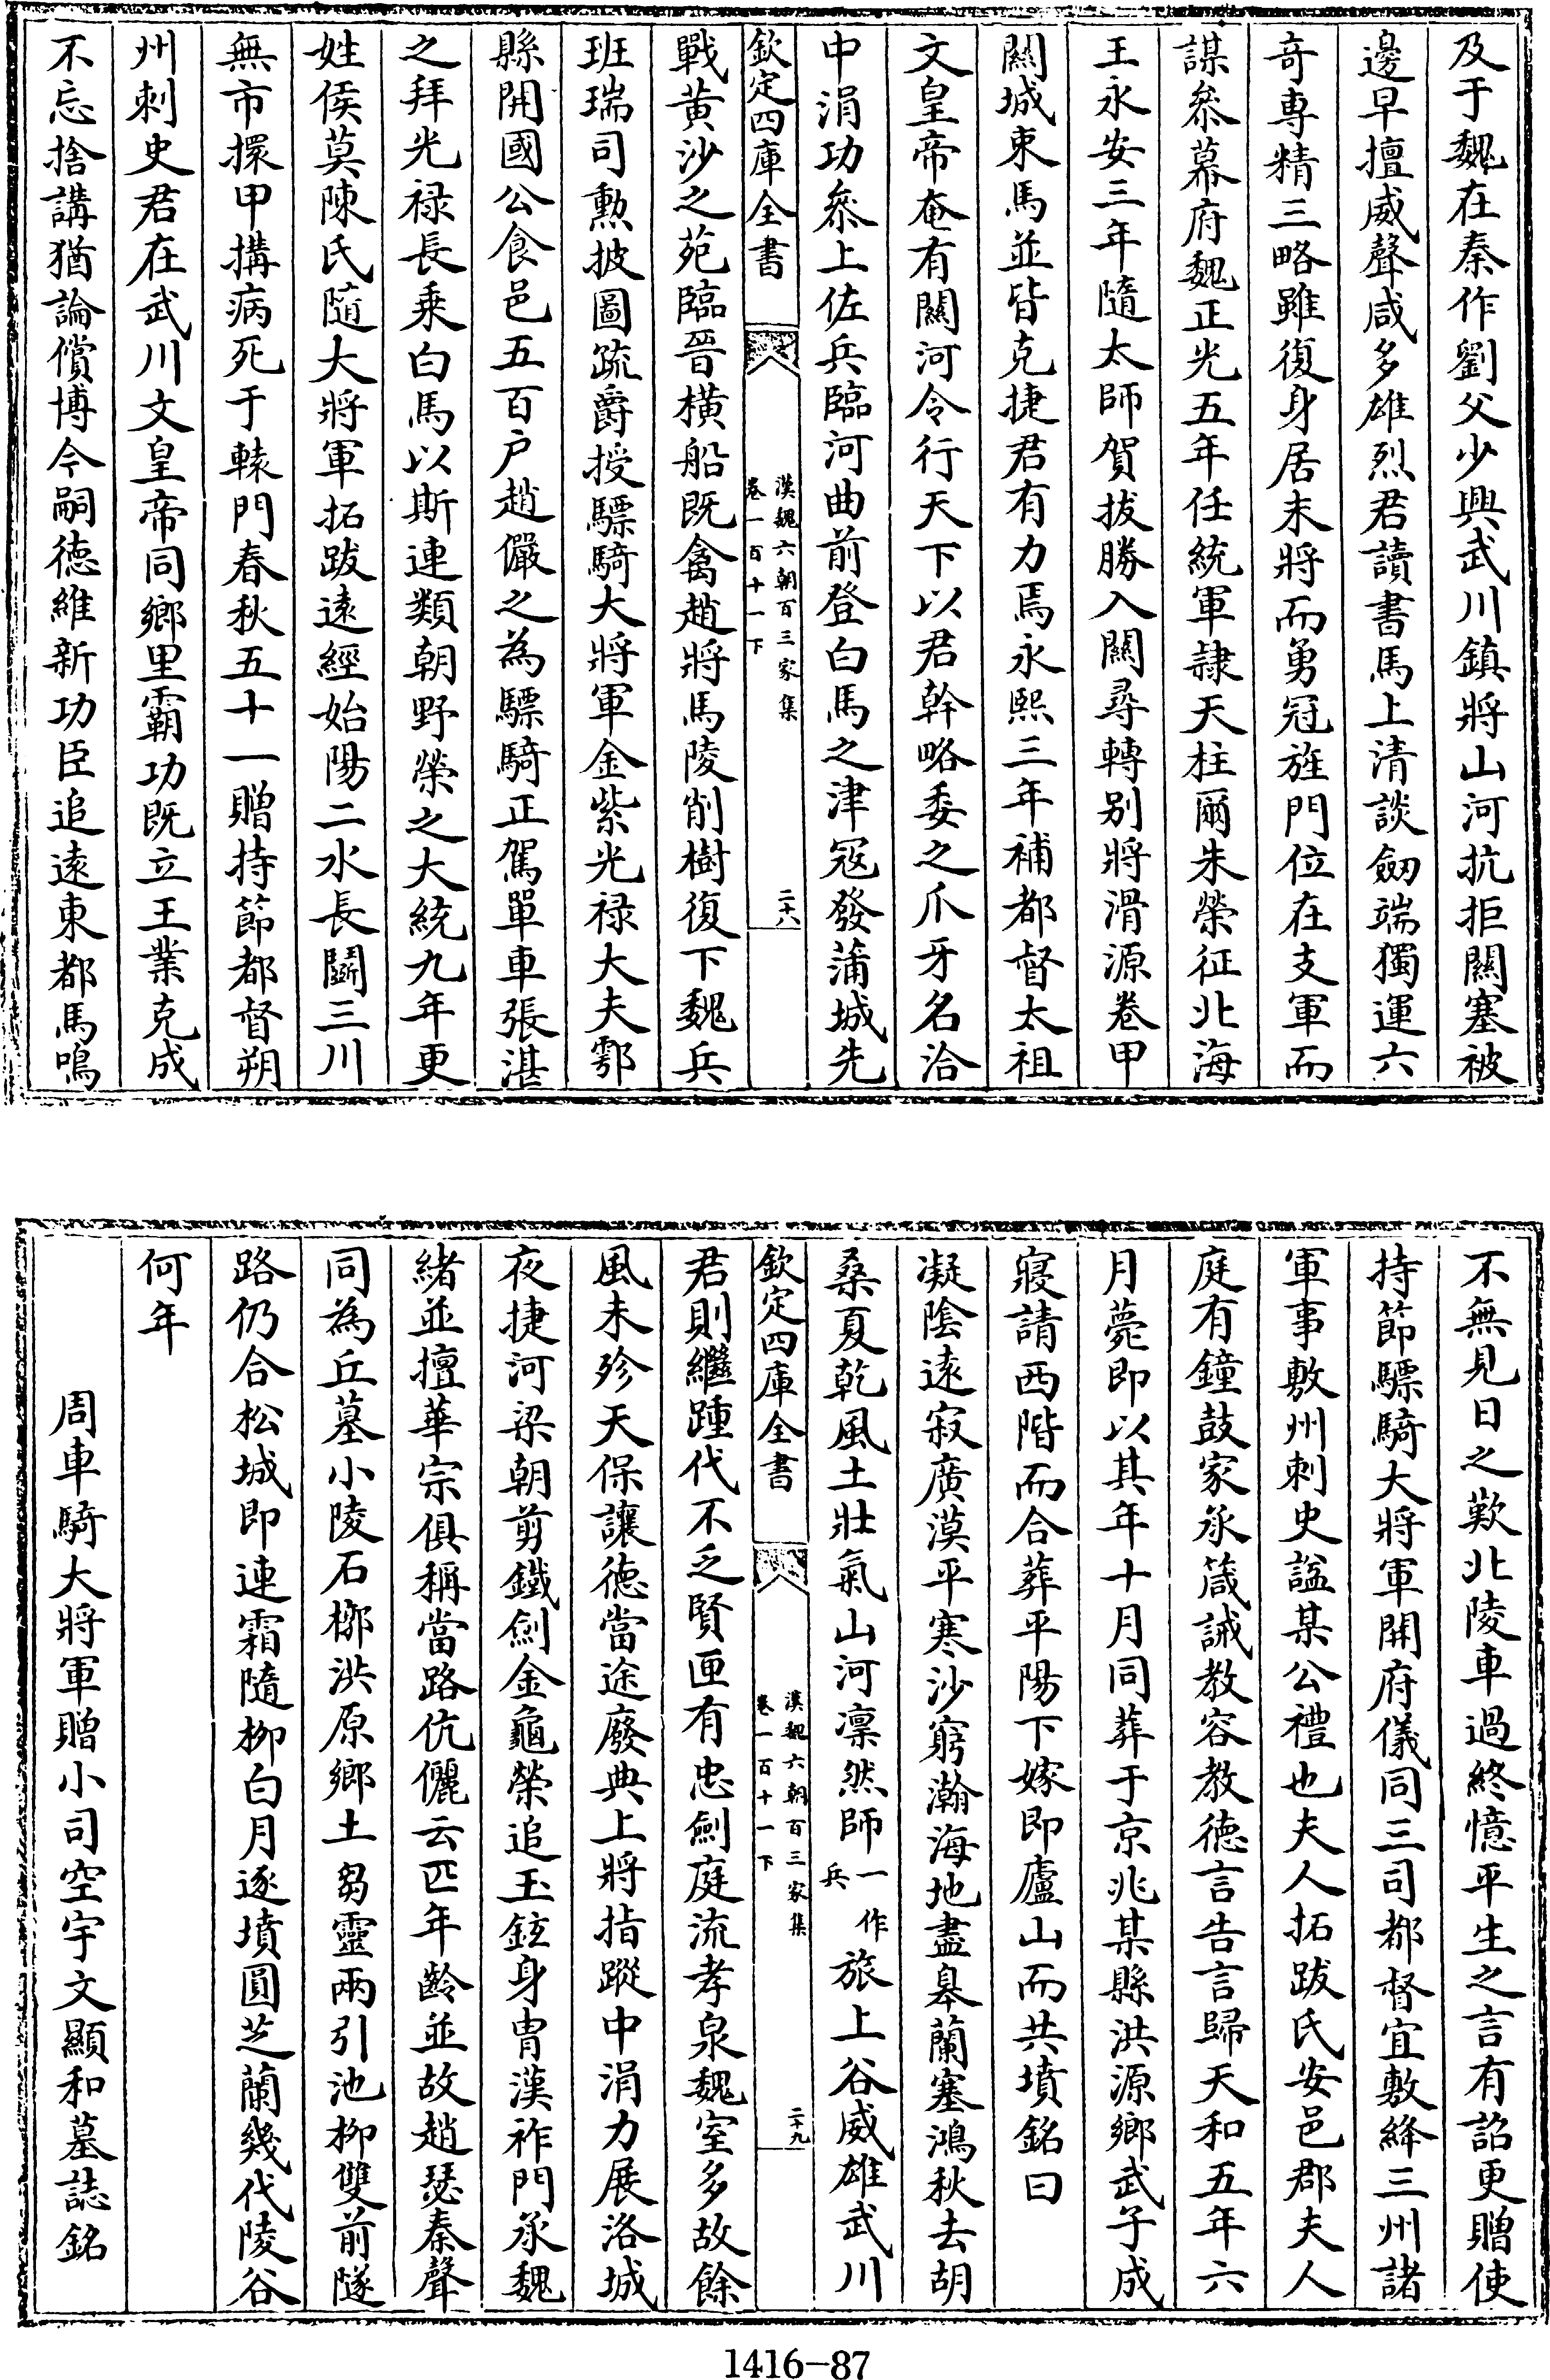 及于魏在秦作劉父少興武川鎮將山河抗拒關塞被
邊早擅威聲咸多雄烈君讀書馬上清談劒端獨運六
奇專精三略雖復身居末將而勇冠旌門位在支軍而
謀叅幕府魏正光五年任統軍隷天柱爾朱榮征北海
王永安三年隨太師賀拔勝入關尋轉别將滑源卷甲
關城東馬並皆克捷君有力焉永熙三年補都督太祖
文皇帝奄有關河令行天下以君幹略委之爪牙名洽
中涓功叅上佐兵臨河曲前登白馬之津冦發蒲城先
欽定四庫全書
漢魏六朝百三家集
卷一百十一下
二十八
戰黃沙之苑臨晉橫船既禽趙將馬陵削樹復下魏兵
班瑞司勲披圖疏爵授驃騎大將軍金紫光祿大夫鄠
縣開國公食邑五百户趙儼之為驃騎正駕單車張湛
之拜光祿長乗白馬以斯連類朝野榮之大統九年更
姓侯莫陳氏隨大將軍拓跋遠經始陽二水長鬭三川
無市擐甲搆病死于轅門春秋五十一贈持節都督朔
州刺史君在武川文皇帝同鄉里霸功既立王業克成
不忘捨講猶論償博今嗣德維新功臣追逺東都馬鳴
不無見日之歎北陵車過終憶平生之言有詔更贈使
持節驃騎大將軍開府儀同三司都督宜敷絳三州諸
軍事敷州刺史諡某公禮也夫人拓跋氏安邑郡夫人
庭有鐘鼓家承箴誡教容教德言告言歸天和五年六
月薨即以其年十月同葬于京兆某縣洪源鄉武子成
寢請西階而合葬平陽下嫁即廬山而共墳銘曰
凝陰逺寂廣漠平寒沙窮瀚海地盡皋蘭塞鴻秋去胡
桑夏乾風土壯氣山河凛然師一作兵旅上谷威雄武川
欽定四庫全書
漢魏六朝百三家集
卷一百十一下
二十九
君則繼踵代不乏賢匣有忠劍庭流孝泉魏室多故餘
風未殄天保讓德當途廢典上將指蹤中涓力展洛城
夜捷河梁朝剪鐵劍金龜榮追玉鉉身胄漢祚門承魏
緒並擅華宗俱稱當路伉儷云匹年齡並故趙瑟秦聲
同為丘墓小陵石槨洪原鄉土芻靈兩引池柳雙前隧
路仍合松城即連霜隨柳白月逐墳圓芝蘭幾代陵谷
何年
周車騎大將軍贈小司空宇文顯和墓誌銘
1416-87